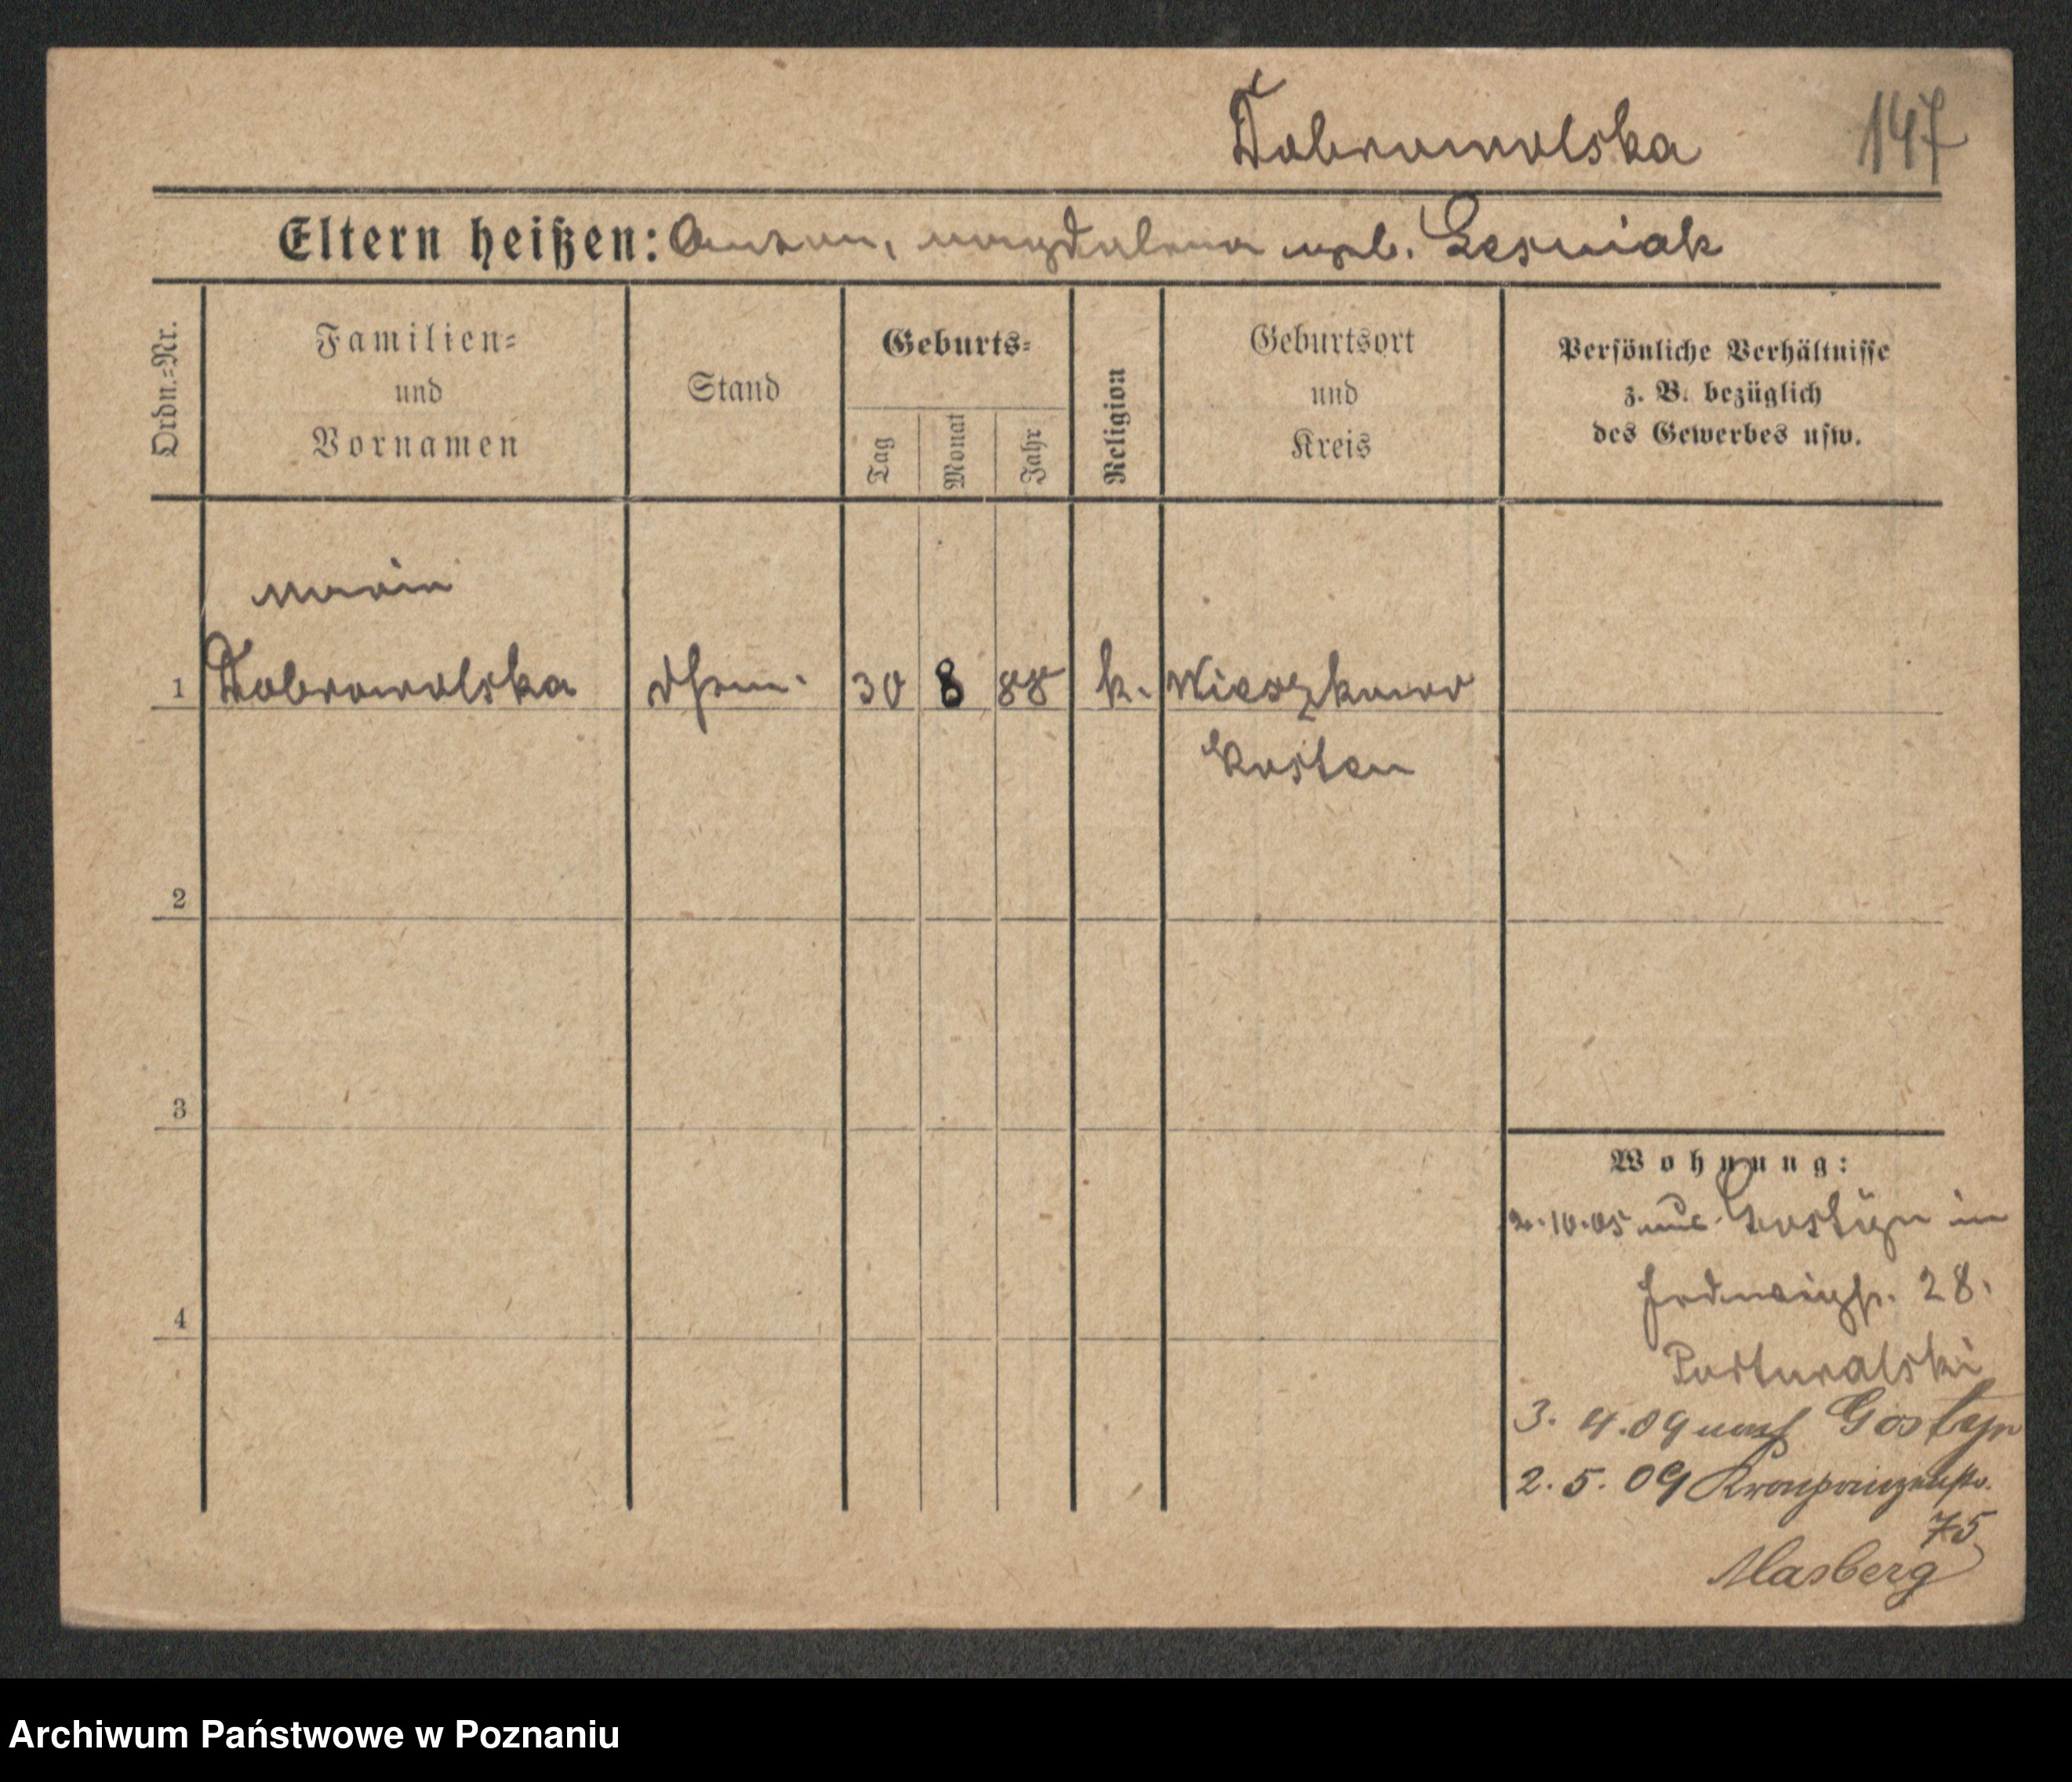 Dobrowolska 147
Eltern heißen: Anton, Magdalena geb. Lesniak
Ordn.=Nr.
Familien=
und
Vornamen
Stand
Geburts=
Tag
Monat
Jahr
Religion
Geburtsort
und
Kreis
Persönliche Verhältnisse
z. B. bezüglich
des Gewerbes usw.
Maria
1 Dobrowolska 30 8 88 k. Wieszkowo
Kosten
2
3
4
Wohnung:
2.10.05 aus Gostÿn in
28.
3. 4.09 nach Gostyn
2. 5. 09 Kronprinzenstr.
75
Masberg
Archiwum Państwowe w Poznaniu